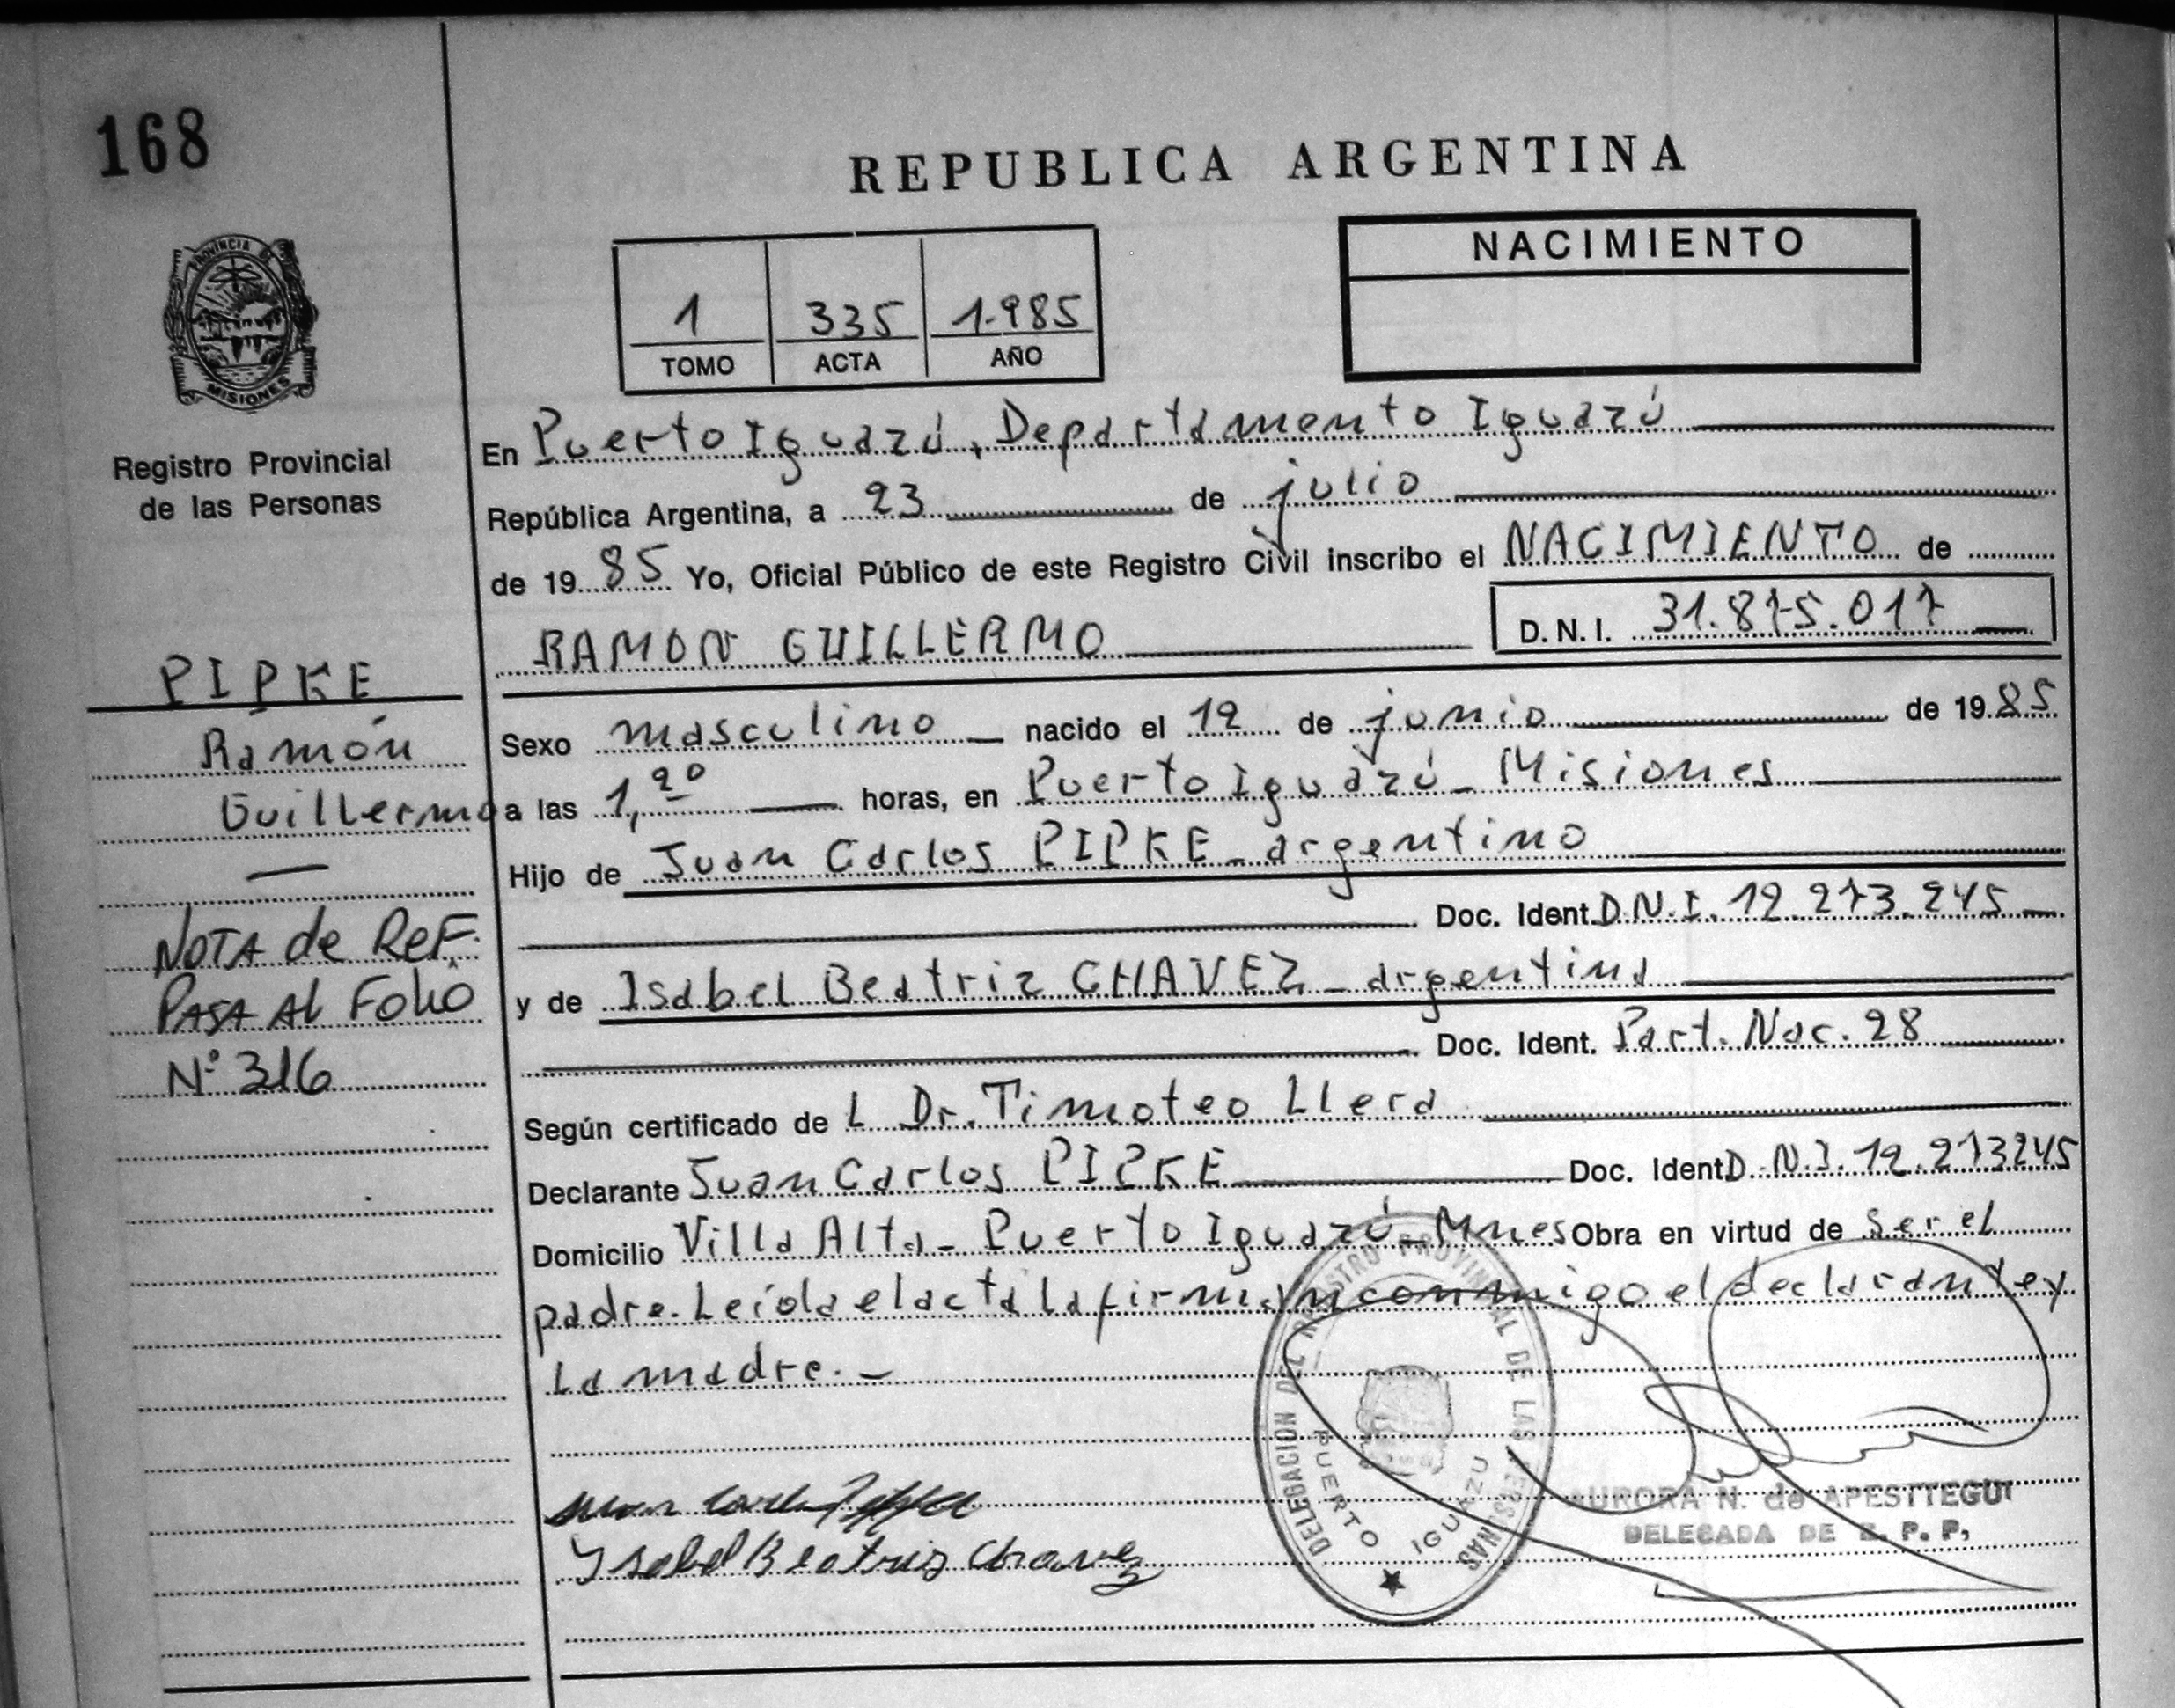 168
REPUBLICA ARGENTINA
PROVINCIA DE
MISIONES
Registro Provincial
de las Personas
1 335 1.985
TOMO ACTA AÑO
NACIMIENTO
En Puerto Iguazú, Departamento Iguazú
República Argentina, a 23 de julio
de 19 85 Yo, Oficial Público de este Registro Civil inscribo el NACIMIENTO de
RAMON GUILLERMO D.N.I. 31.875.017
PIPKE
Ramón
Guillermo
NOTA de REF.
PASA AL FOLIO
N° 316
Sexo masculino nacido el 12 de junio de 1985
a las 1,20 horas, en Puerto Iguazú - Misiones
Hijo de Juan Carlos PIPKE - argentino
Doc. Ident. D.N.I. 12.273.245
y de Isabel Beatriz CHAVEZ - argentina
Doc. Ident. Part. Nac. 28
Según certificado de L Dr. Timoteo Llera
Declarante Juan Carlos PIPKE Doc. Ident. D.N.I. 12.273245
Domicilio Villa Alta - Puerto Iguazú - Mnes Obra en virtud de ser el
padre. Leída el acta la firman conmigo el declarante y
la madre. -
Ysabel Beatriz Chavez
DELEGACION DEL REGISTRO PROVINCIAL DE LAS PERSONAS
PUERTO IGUAZU
AURORA N. de APESTTEGUI
DELEGADA DE R. P. P,